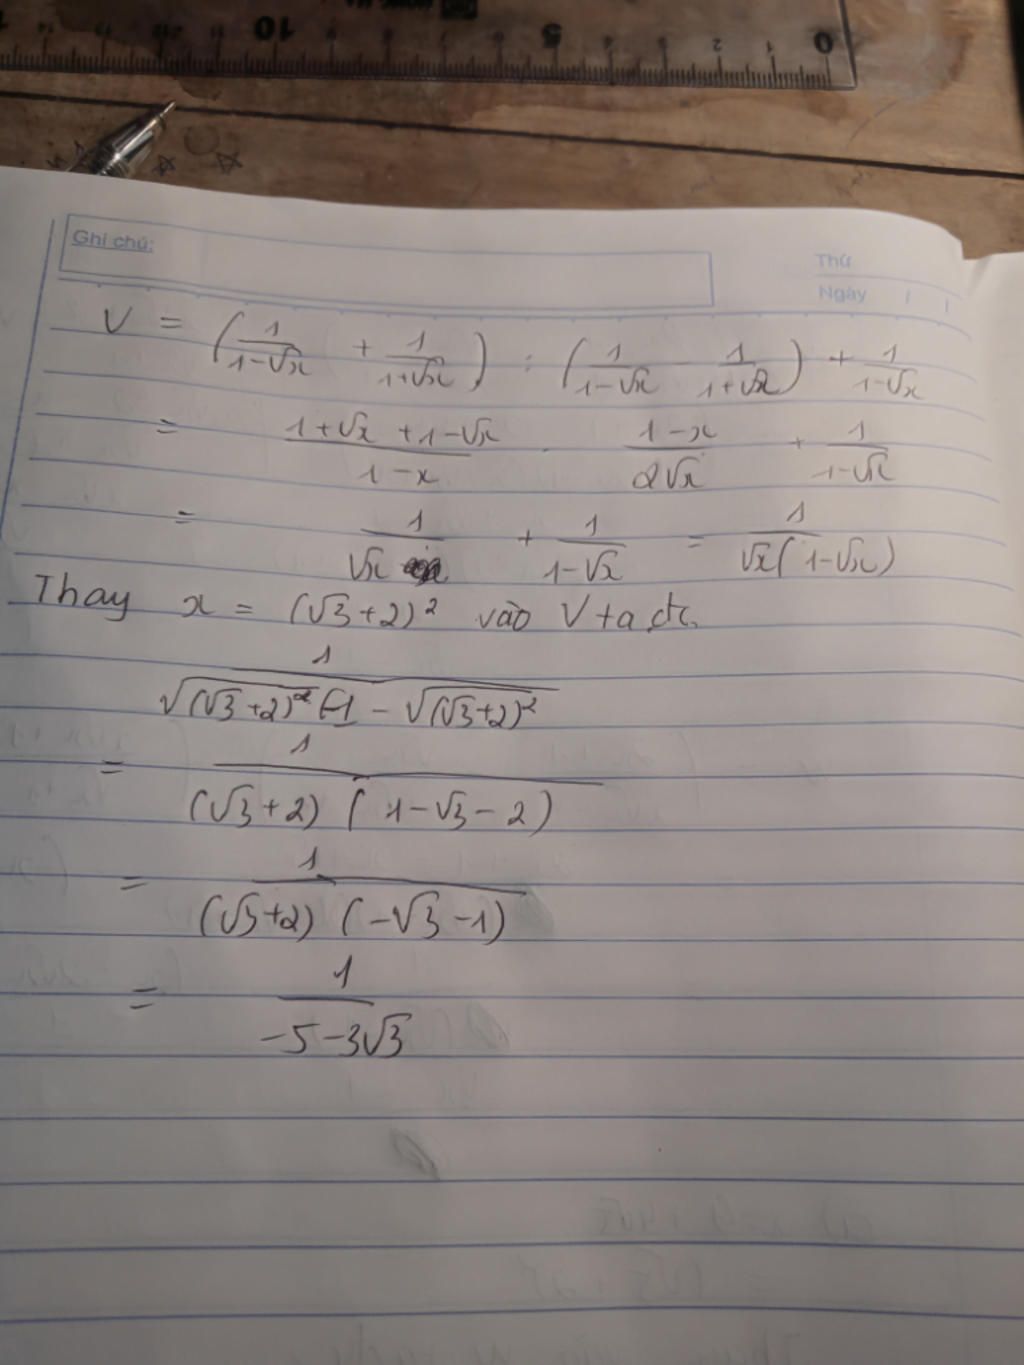 0 1 2 5 10
Ghi chú:
Thứ
Ngày / /
V = (1/(1-√x) + 1/(1+√x)) : (1/(1-√x) - 1/(1+√x)) + 1/(1-√x)
= (1+√x+1-√x)/(1-x) · (1-x)/(2√x) + 1/(1-√x)
= 1/√x + 1/(1-√x) = 1/(√x(1-√x))
Thay x = (√3+2)² vào V ta đc
1/(√((√3+2)²) (1 - √((√3+2)²)
= 1/((√3+2) (1-√3-2))
= 1/((√3+2) (-√3-1))
= 1/(-5-3√3)